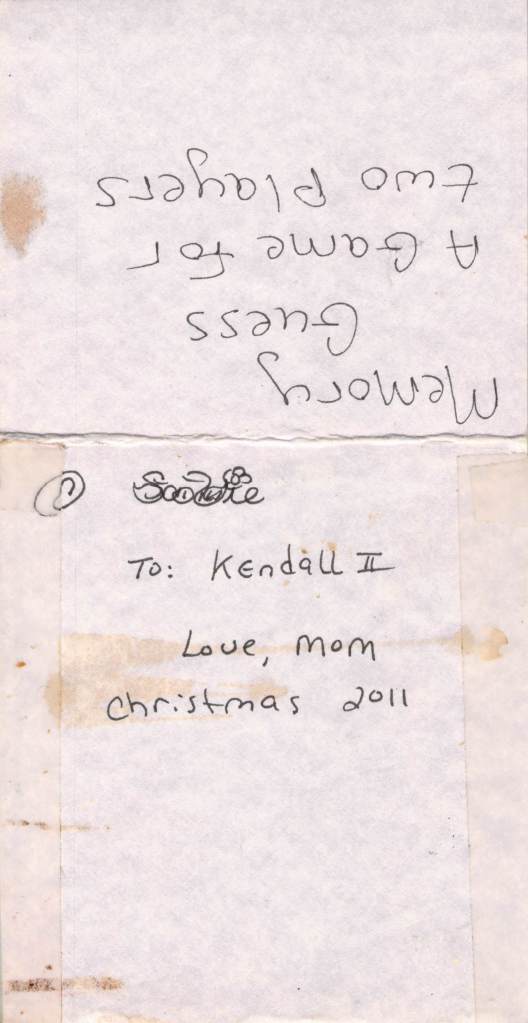 Memory
Guess
A Game for
two Players
①
To: Kendall II
Love, Mom
Christmas 2011